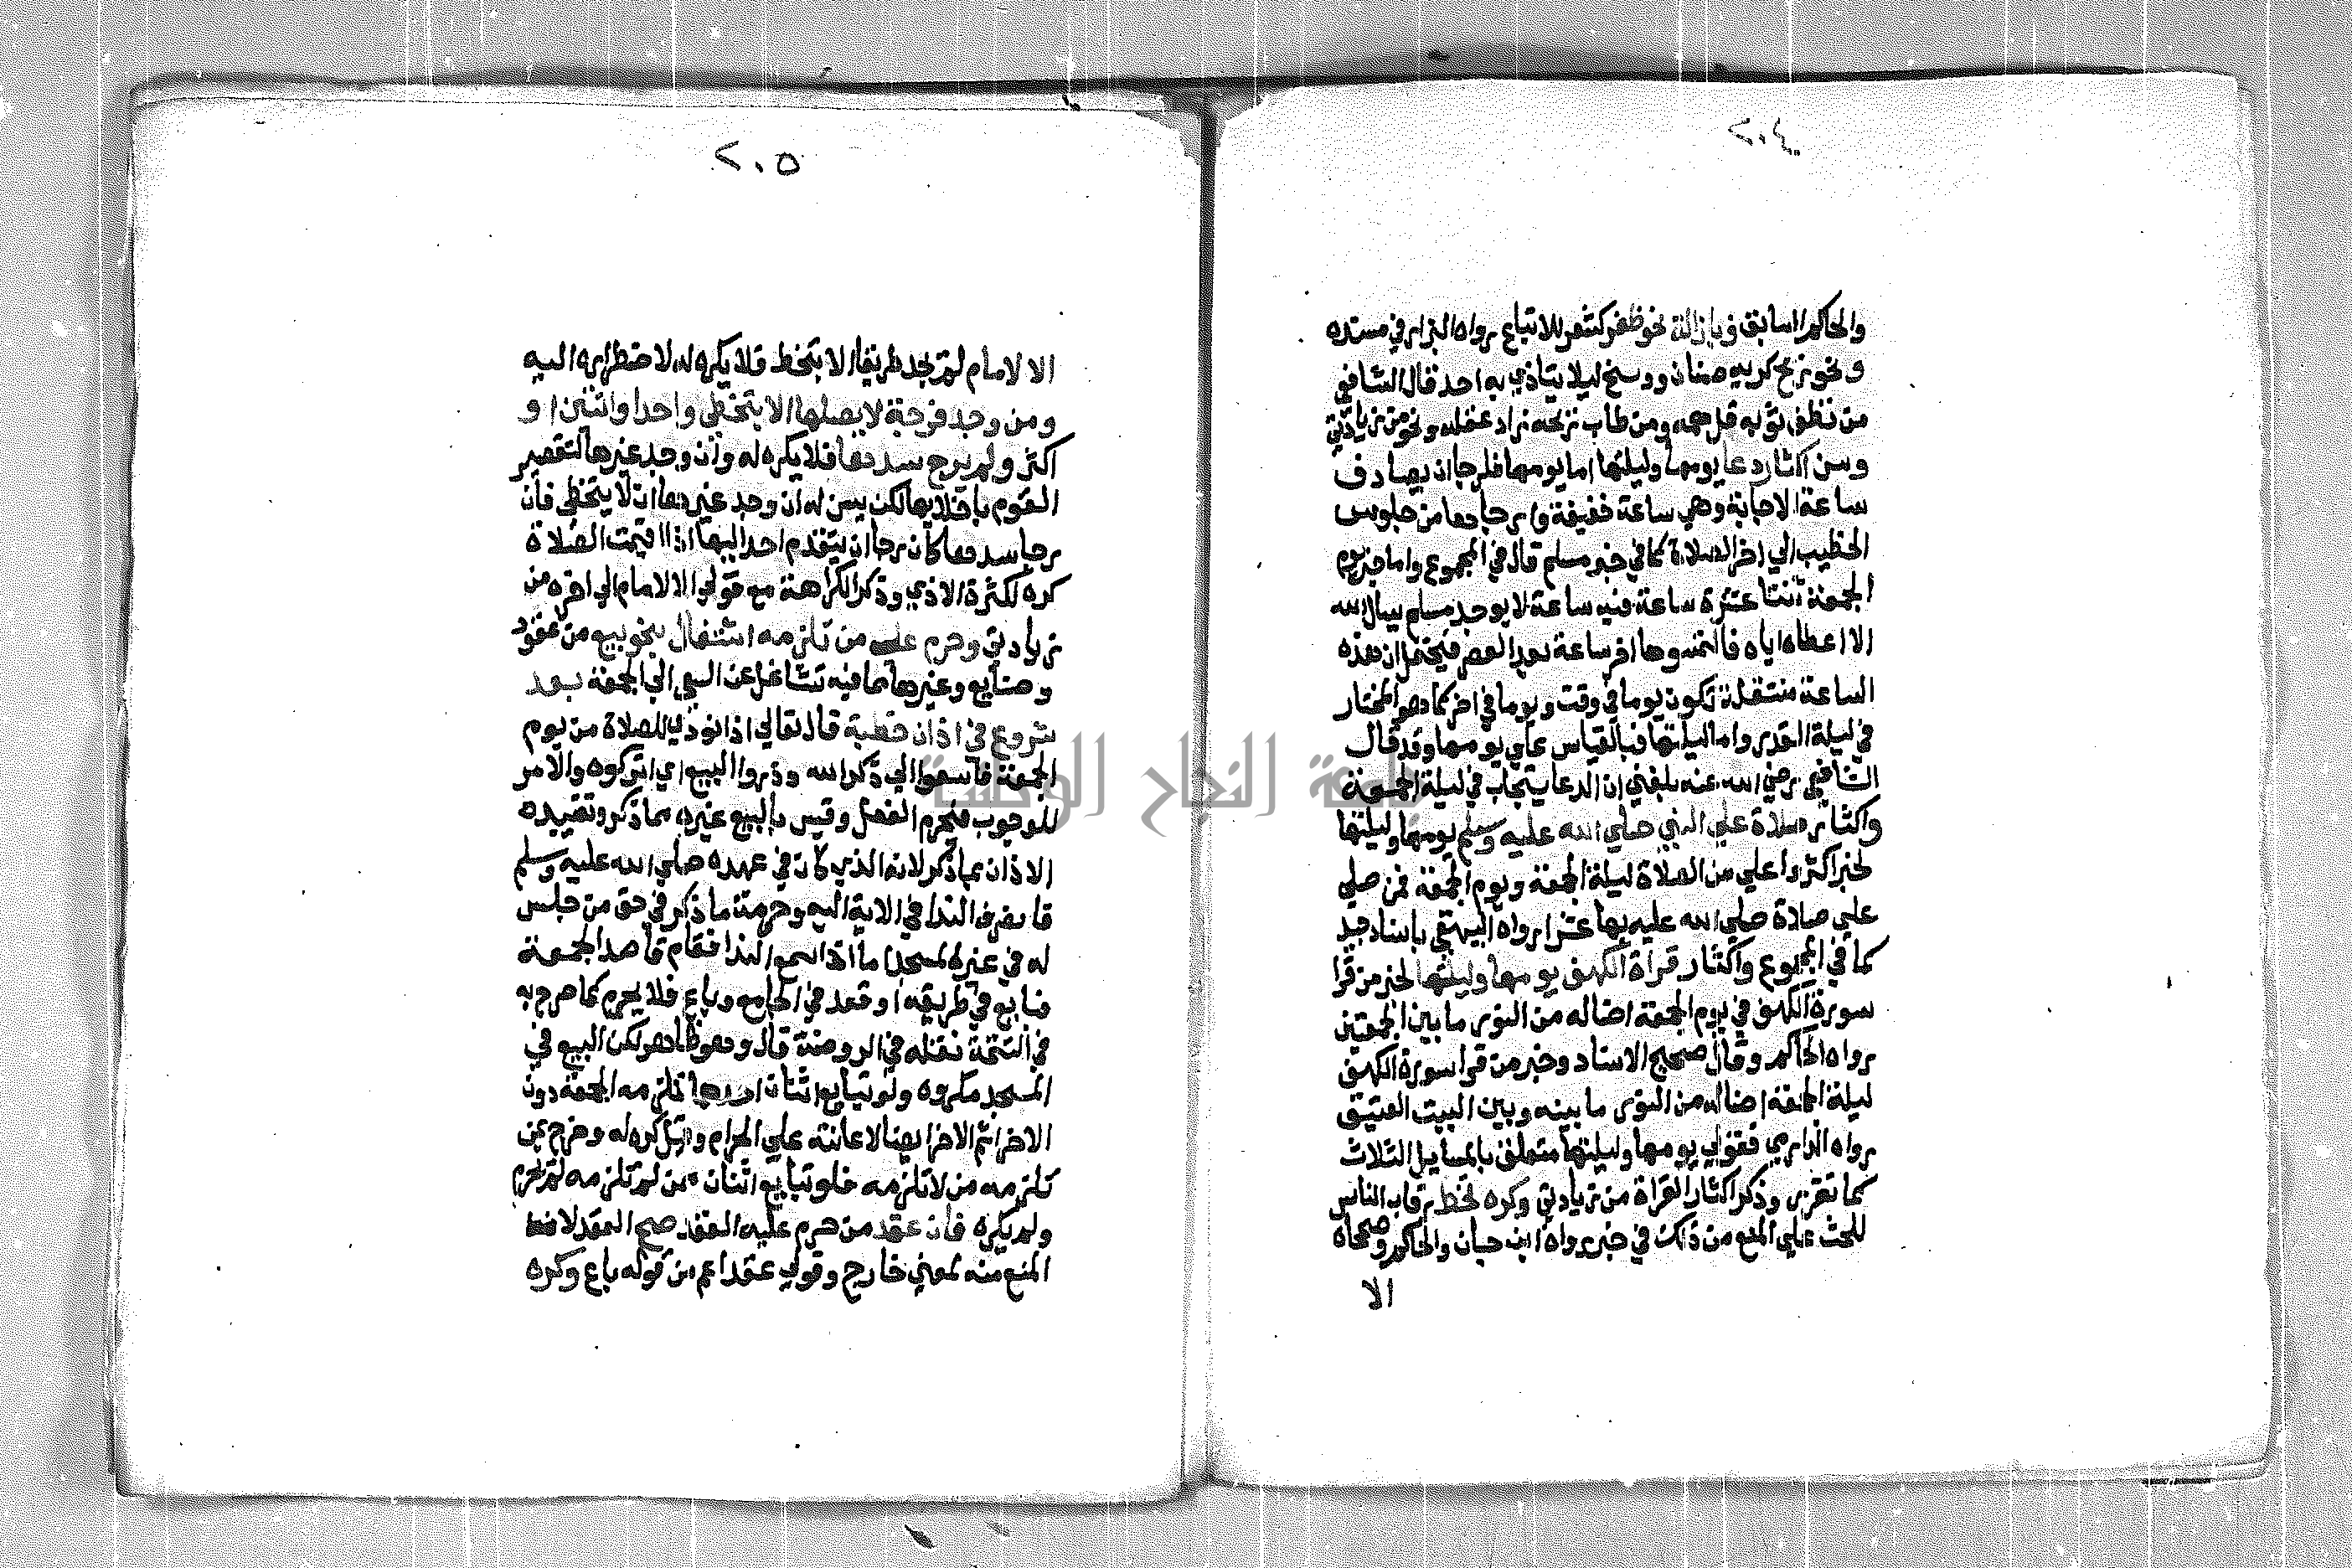 ٢٠٤
والحاكم السابق وبازالة نحو ظفر كشعر للاتباع رواه البزار في مسنده
ونحو ريح كريه صنان ووسخ ليلا يتاذي به احد قال الشافعي
من نظف ثوبه قل همه ومن طاب ريحه زاد عقله ونحو من زيادتي
وسن اكثار دعا يومها وليلتها اما يومها فلرجا ان يصادف
ساعة الاجابة وهي ساعة خفيفة وارجاها من جلوس
الخطيب الي اخر الصلاة كما في خبر مسلم قال في المجموع واما خبر يوم
الجمعة ثنتا عشرة ساعة فيه ساعة لا يوجد مسلم يسال الله
الا اعطاه اياه فالتمسوها اخر ساعة بعد العصر فيحتمل ان هذه
الساعة منتقلة تكون يوما في وقت ويوما في اخر كما هو المختار
في ليلة القدر واما ليلتها فبالقياس علي يومها وقد قال
الشافعي رضي الله عنه بلغني ان الدعا يستجاب في ليلة الجمعة
واكثار صلاة علي النبي صلي الله عليه وسلم يومها وليلتها
لخبر اكثروا علي من الصلاة ليلة الجمعة ويوم الجمعة فمن صلي
علي صلاة صلي الله عليه بها عشرا رواه البيهقي باسناد جيد
كما في المجموع واكثار قراة الكهف يومها وليلتها لخبر من قرا
سورة الكهف في يوم الجمعة اضا له من النور ما بين الجمعتين
رواه الحاكم وقال صحيح الاسناد وخبر من قرا سورة الكهف
ليلة الجمعة اضا له من النور ما بينه وبين البيت العتيق
رواه الدارمي فقولي يومها وليلتها متعلق بالمسايل الثلاث
كما تقرر وذكر اكثار القراة من زيادتي وكره تخط رقاب الناس
للحث علي المنع من ذلك في خبر رواه ابن حبان والحاكم وصححاه
الا
٢٠٥
الا لامام لم يجد طريقا الا بتخط فلا يكره له لاضطراره اليه
ومن وجد فرجة لا يصلها الا بتخطي واحد او اثنين او
اكثر ولم يرج سدها فلا يكره له وان وجد غيرها لتقصير
القوم باخلايها لكن يسن له ان وجد غيرها ان لا يتخطي فان
رجا سدها كان رجا ان يتقدم احد اليها اذا اقيمت الصلاة
كره لكثرة الاذي وذكر الكراهة مع قولي الا لامام الي اخره من
زيادتي وحرم علي من تلزمه اشتغال بنحو بيع من عقود
وصنايع وغيرها مما فيه تشاغل عن السعي الي الجمعة بعد
شروع في اذان خطبة قال تعالي اذا نودي للصلاة من يوم
الجمعة فاسعوا الي ذكر الله وذروا البيع اي اتركوه والامر
للوجوب فيحرم الفعل وقيس بالبيع غيره مما ذكر وتقييده
الاذان بما ذكر لانه الذي كان في عهده صلي الله عليه وسلم
فانصرف الندا في الاية اليه وحرمة ما ذكر في حق من جلس
له في غير المسجد اما اذا سمع الندا فقام قاصد الجمعة
فبايع في طريقه او قعد في الجامع وباع فلا يحرم كما صرح به
في التتمة نقله في الروضة قال وهو ظاهر لكن البيع في
المسجد مكروه ولو تبايع اثنان احدهما تلزمه الجمعة دون
الاخر اثم الاخر ايضا لاعانته علي الحرام وقيل كره له وخرج بمن
تلزمه من لا تلزمه فلو تبايع اثنان ممن لم تلزمه لم يحرم
ولم يكره فان عقد من حرم عليه العقد صح العقد لان
المنع منه لمعني خارج وقولي عقد اعم من قوله باع وكره
جامعة النجاح الوطنية